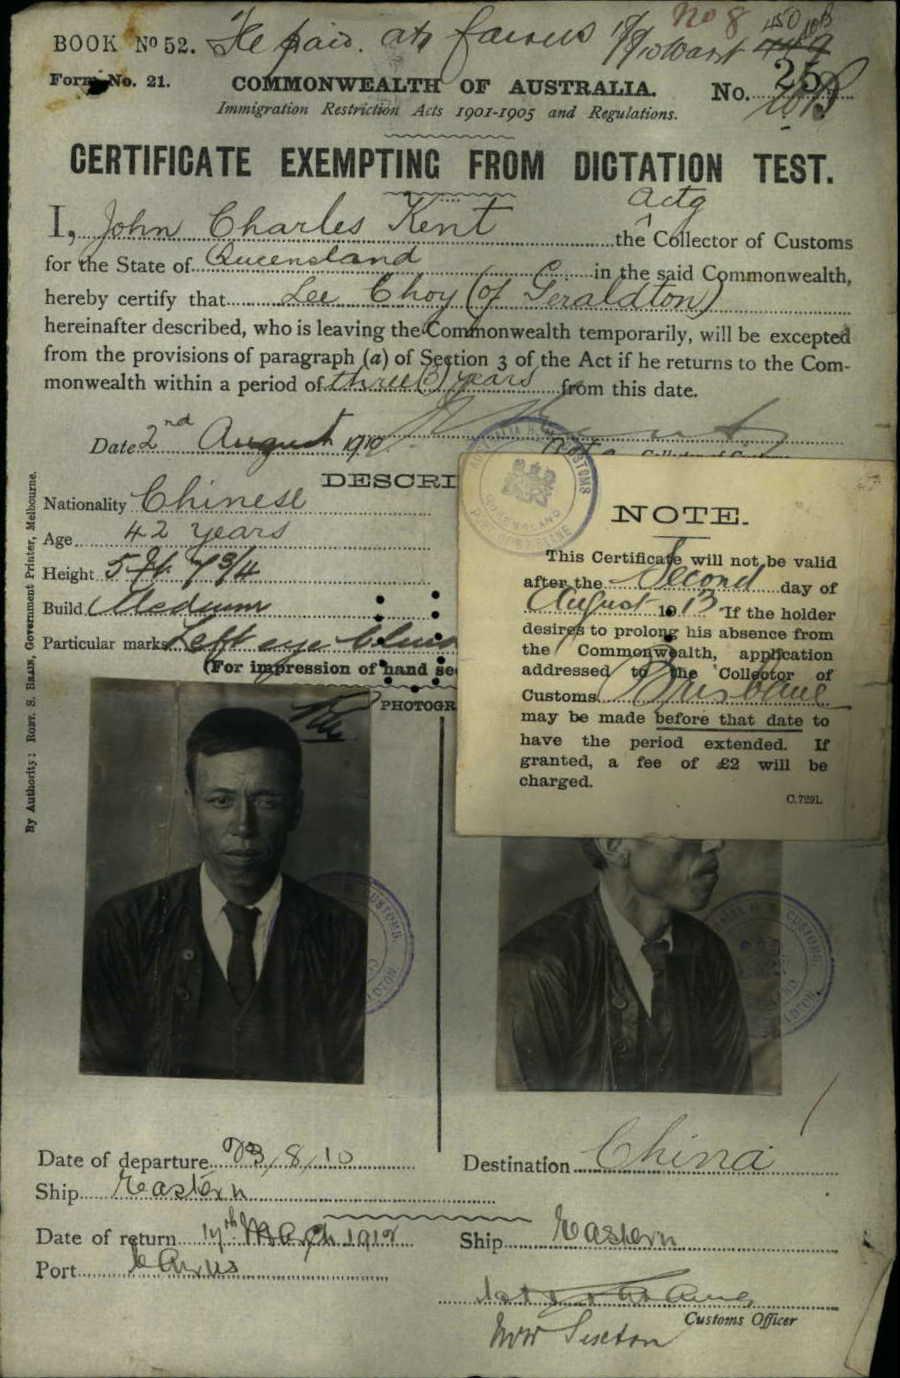 BOOK No 52. Fe paid. at Cairns No 8 450
Form No. 21. COMMONWEALTH OF AUSTRALIA. No.
Immigration Restriction Acts 1901-1905 and Regulations.
CERTIFICATE EXEMPTING FROM DICTATION TEST.
Actg
I, John Charles Kent the Collector of Customs
for the State of Queensland in the said Commonwealth,
hereby certify that Lee Choy (of Geraldton)
hereinafter described, who is leaving the Commonwealth temporarily, will be excepted
from the provisions of paragraph (a) of Section 3 of the Act if he returns to the Com-
monwealth within a period of three (3) years from this date.
Date 2nd August 1910
DESCRI
Nationality Chinese
Age 42 years
Height 5 ft 7 3/4
Build Medium
Particular marks Left eye
(For impression of hand se
PHOTOGR
NOTE.
This Certificate will not be valid
after the Second day of
August 1913 If the holder
desires to prolong his absence from
the Commonwealth, application
addressed to the Collector of
Customs Brisbane
may be made before that date to
have the period extended. If
granted, a fee of £2 will be
charged.
C.7291.
By Authority: ROBT. S. BRAIN, Government Printer, Melbourne.
Date of departure 23/8/10 Destination China
Ship Eastern
Date of return 17th March 1912 Ship Eastern
Port Cairns
Customs Officer